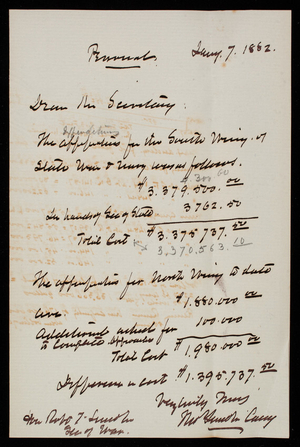 Personal. Jany. 7. 1882.
Dear Mr. Secretary:
expenditures
The appropriation for the South Wing of
State War & Navy was as follows.
$3.379.500.00
In hands of Sec of State 3762.50
Total Cost $3.375.737.50
3,370,563.10
The appropriation for North Wing to date
are: $1.880.000.00
Additional asked for
to Complete approaches 100.000
Total Cost $1,980.000.00
Difference in cost $1.395.737.50
Very truly Yours
Thos Lincoln Casey
Hon Robt T. Lincoln
Sec of War.